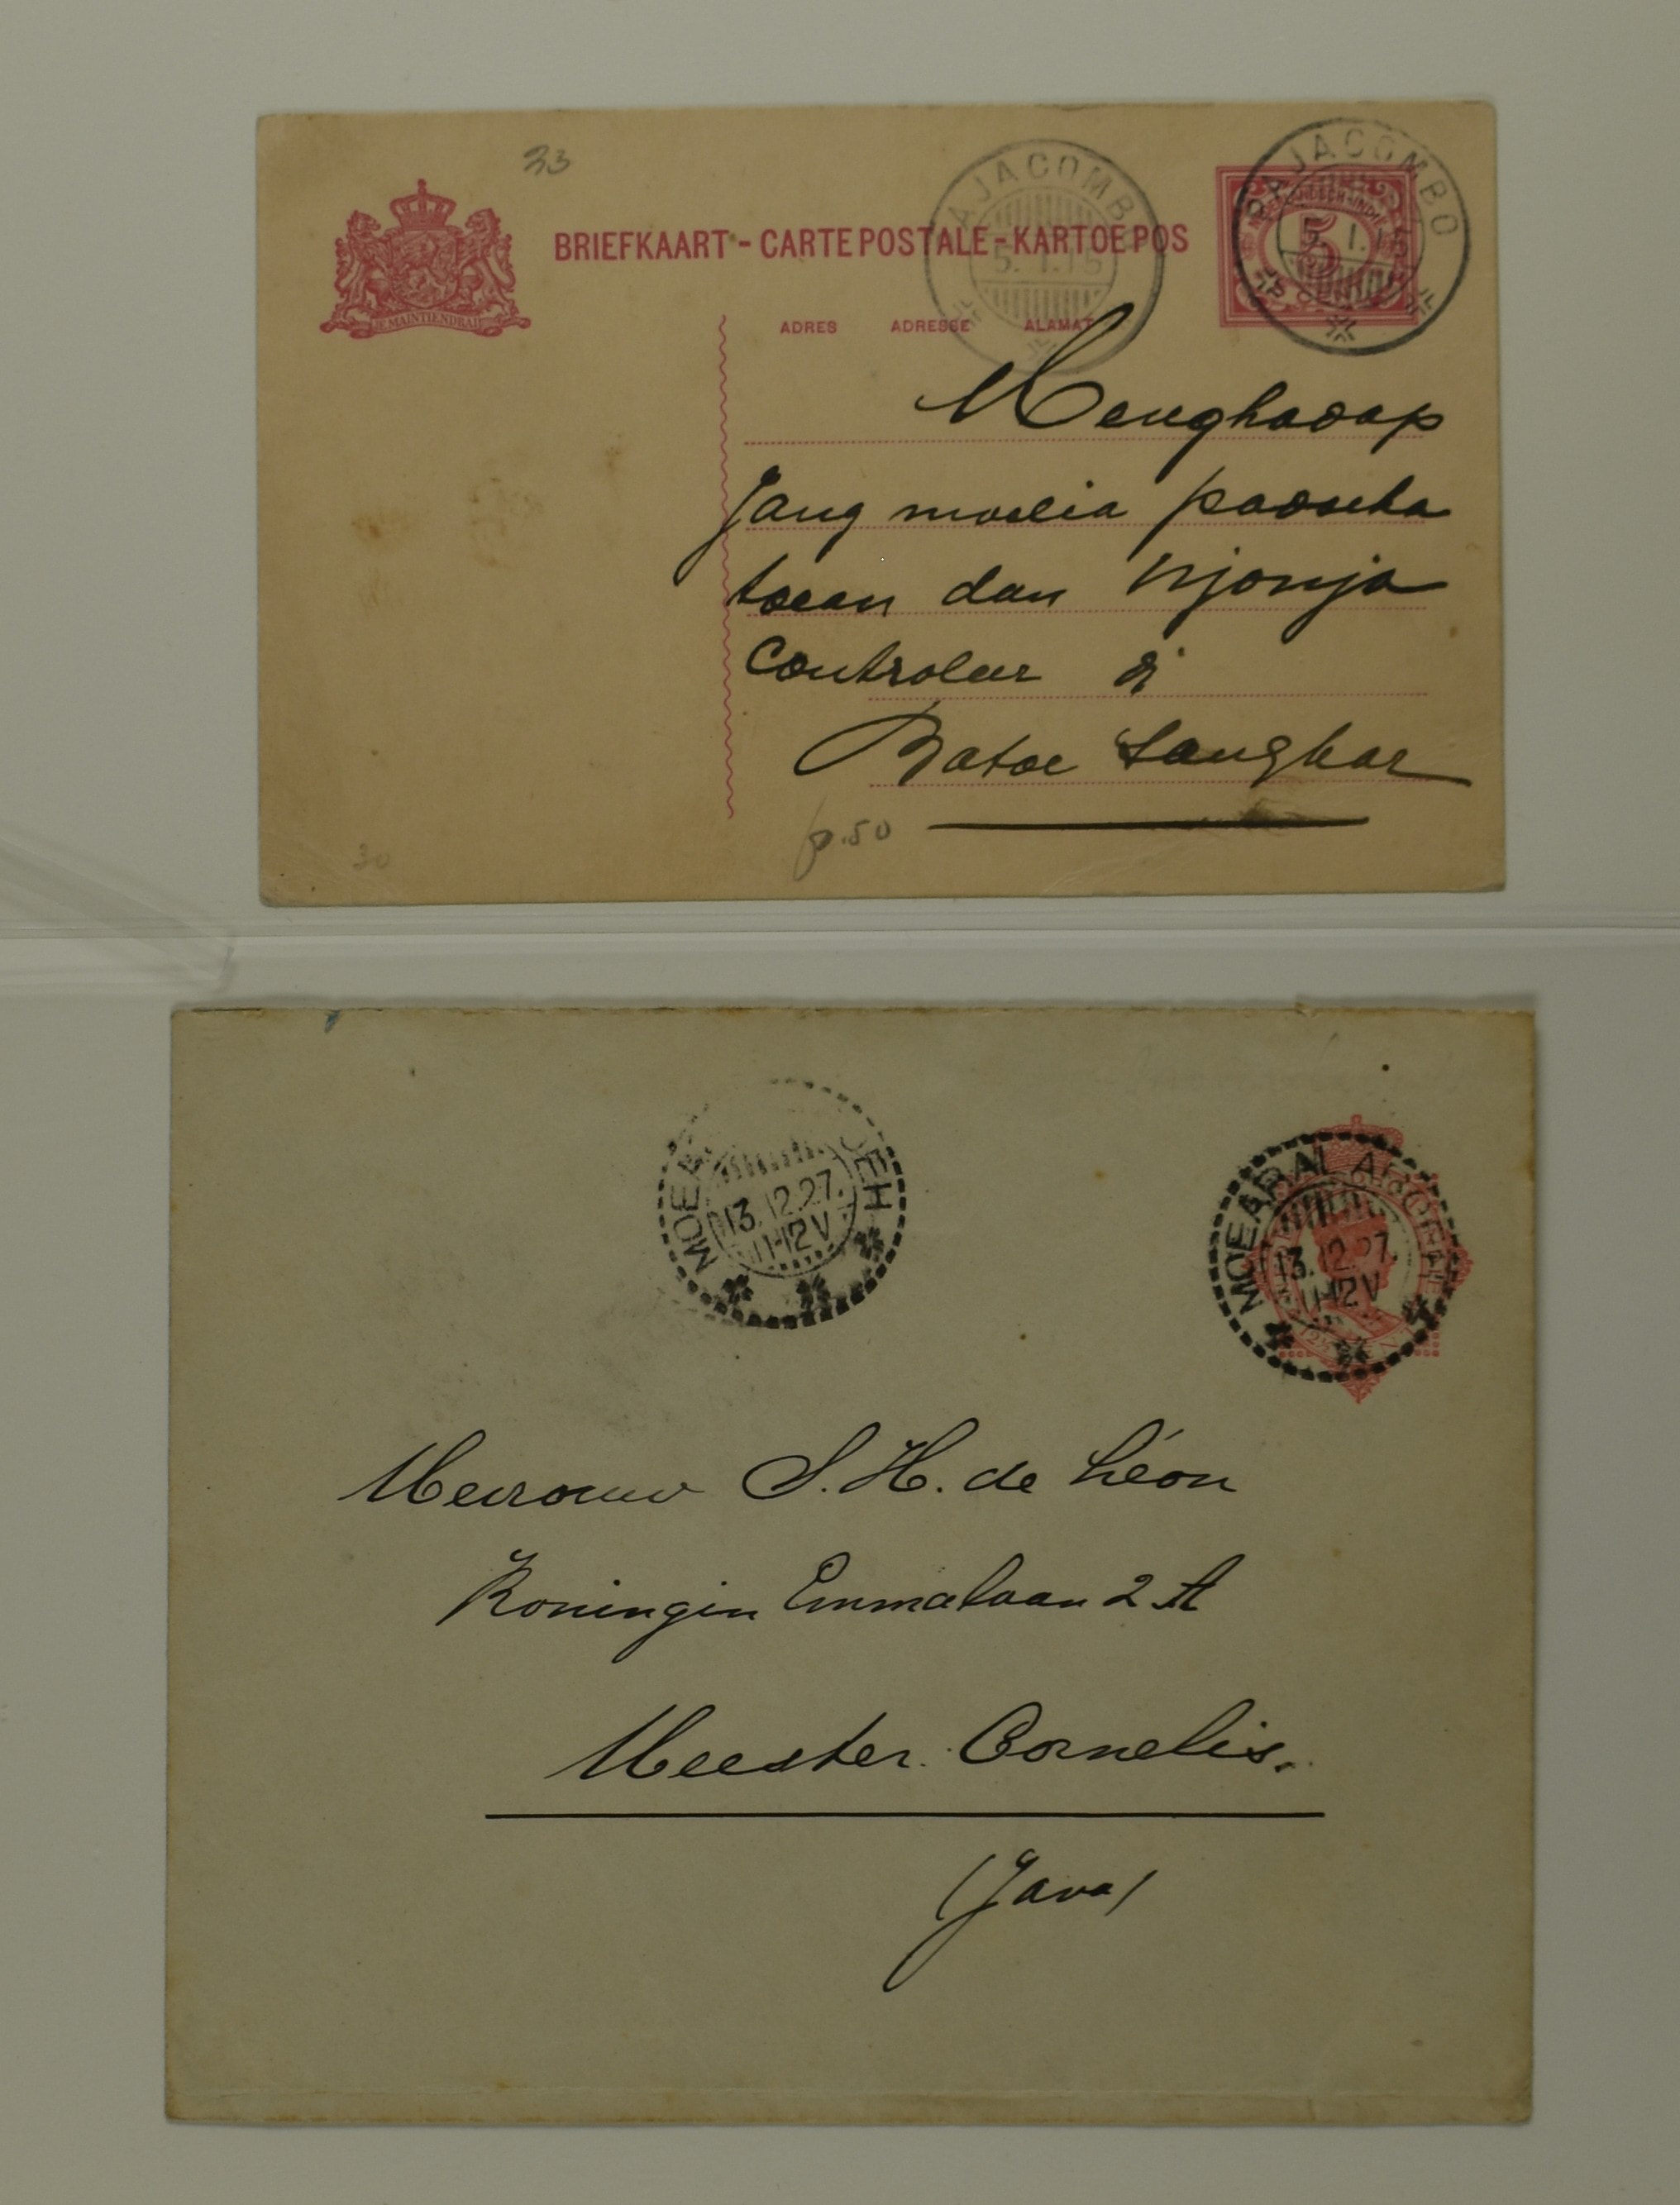 33
BRIEFKAART - CARTE POSTALE - KARTOEPOS
AJACOMB
5.1.15
PAJACOMBO
5.1.15
5
JE MAINTIENDRAI
ADRES ADRESSE ALAMAT
Menghadap
Jang moelia padoeka
toean dan Njonja
Controleur di
Batoe Sangkar
p.50
30
MOEA OEH
13.12.27.
11-12V
MOEARAI
13.12.27.
11-12V
Mevrouw S. H. de Léon
Koningin Emmalaan 2 A
Meester Cornelis.
(Java)